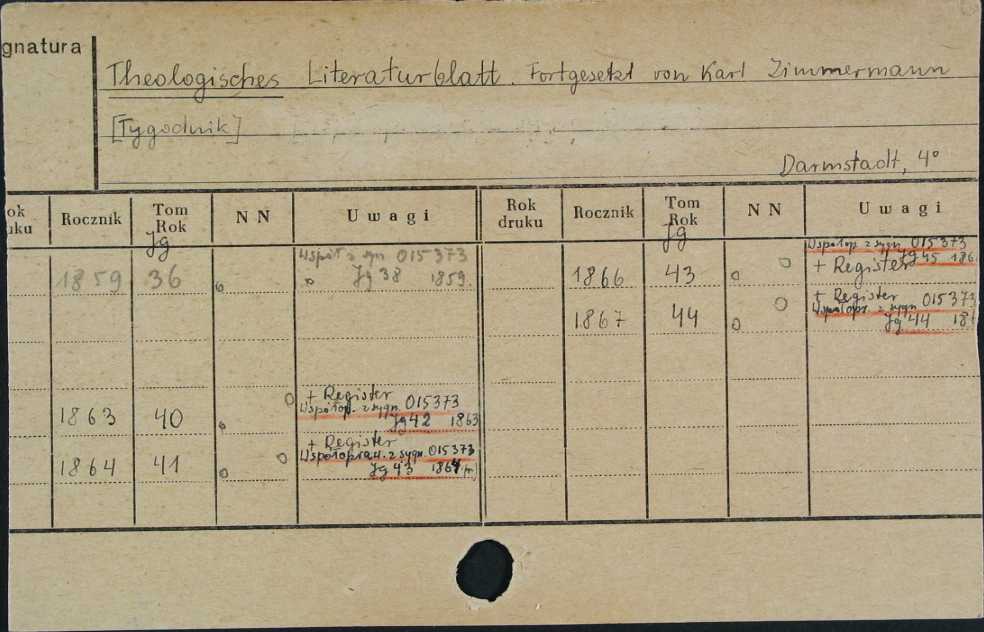 gnatura
Theologisches Literaturblatt. Fortgesetzt von Karl Zimmermann
[Tygodnik]
Darmstadt, 4°
ok
uku
Rocznik
Tom
Rok
Jg
N N
Uwagi
Rok
druku
Rocznik
Tom
Rok
Jg
N N
Uwagi
1859 36 Współ z syn 015373
Jg 38 1859.
1863 40 + Register
Współop. z sygn. 015373
Jg 42 1863
1864 41 + Register
Współopraw. z sygn. 015373
Jg 43 1864
1866 43 Współop z sygn 015373
+ Register Jg 45 186
1867 44 + Register 015373
Współopr. z sygn
Jg 44 18